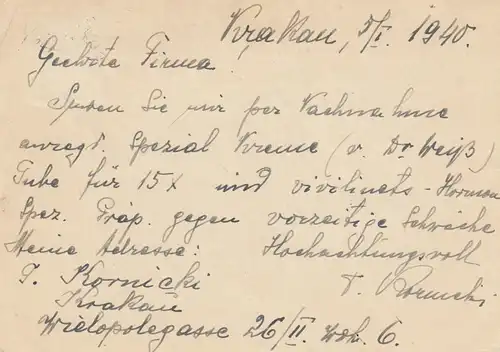 Krakau, 5/I. 1940.
Geehrte Firma!
Senden Sie mir per Nachnahme
anregd. Spezial Kreme (v. Dr Weiß)
Tube für 15 x und vivilinets-Hormon
Spez. Präp. gegen vorzeitige Schwäche
Meine Adresse: Hochachtungsvoll
T. Kornicki T. Kornicki
Krakau
Wielopolegasse 26/II. Woh. 6.